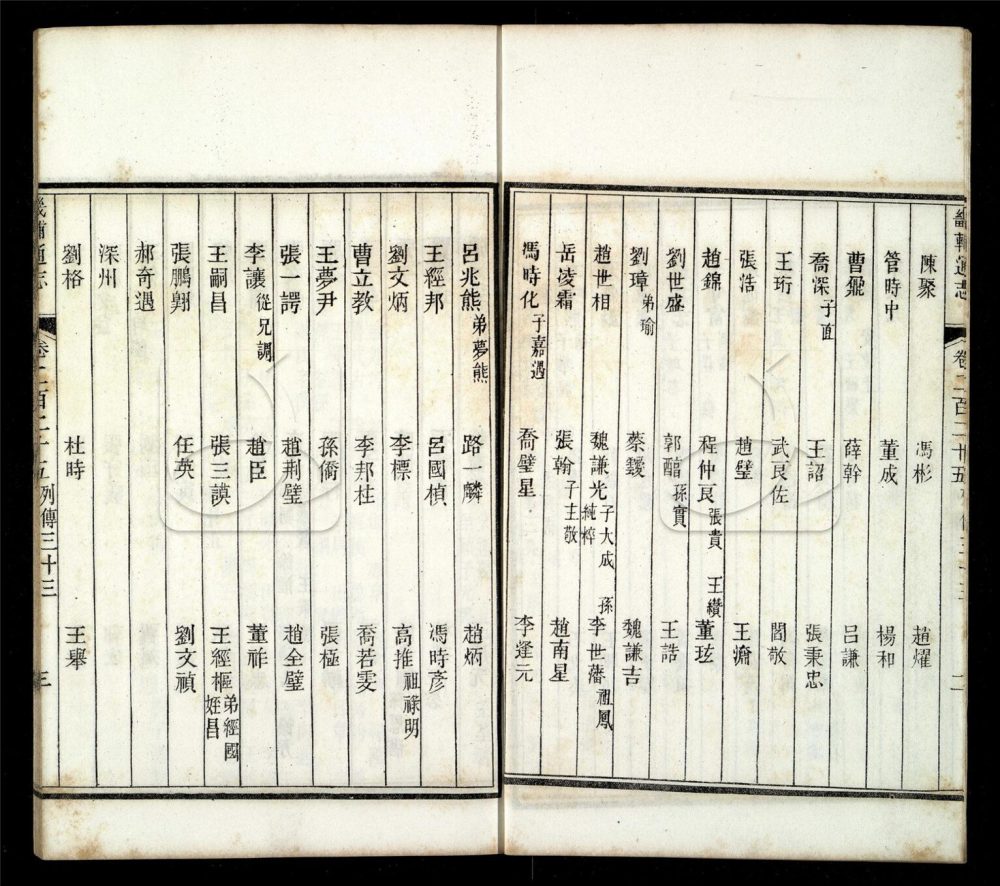 畿輔通志 卷二百二十五 列傳三十三 二
陳聚 馮彬 趙燿
管時中 董成 楊和
曹鼐 薛幹 呂謙
喬深 子直 王詔 張秉忠
王珩 武良佐 閻敬
張浩 趙璧 王瀹
趙錦 程仲良 張貴 王纘 董玹
劉世盛 郭䤃 孫實 王誥
劉璋 弟瑜 蔡靉 魏謙吉
趙世相 魏謙光 子大成 孫純粹 李世藩 祖鳳
岳凌霜 張翰 子主敬 趙南星
馮時化 子嘉遇 喬璧星 李逢元
呂兆熊 弟夢熊 路一麟 趙炳
王經邦 呂國楨 馮時彥
劉文炳 李標 高推 祖祿明
曹立教 李邦柱 喬若雯
王夢尹 孫脩 張極
張一諤 趙荆璧 趙全璧
李讓 從兄調 趙臣 董祚
王嗣昌 張三謨 王經樞 弟經國 姪昌
張鵬翱 任英 劉文禎
郝奇遇
深州
劉格 杜時 王舉
畿輔通志 卷二百二十五 列傳三十三 三